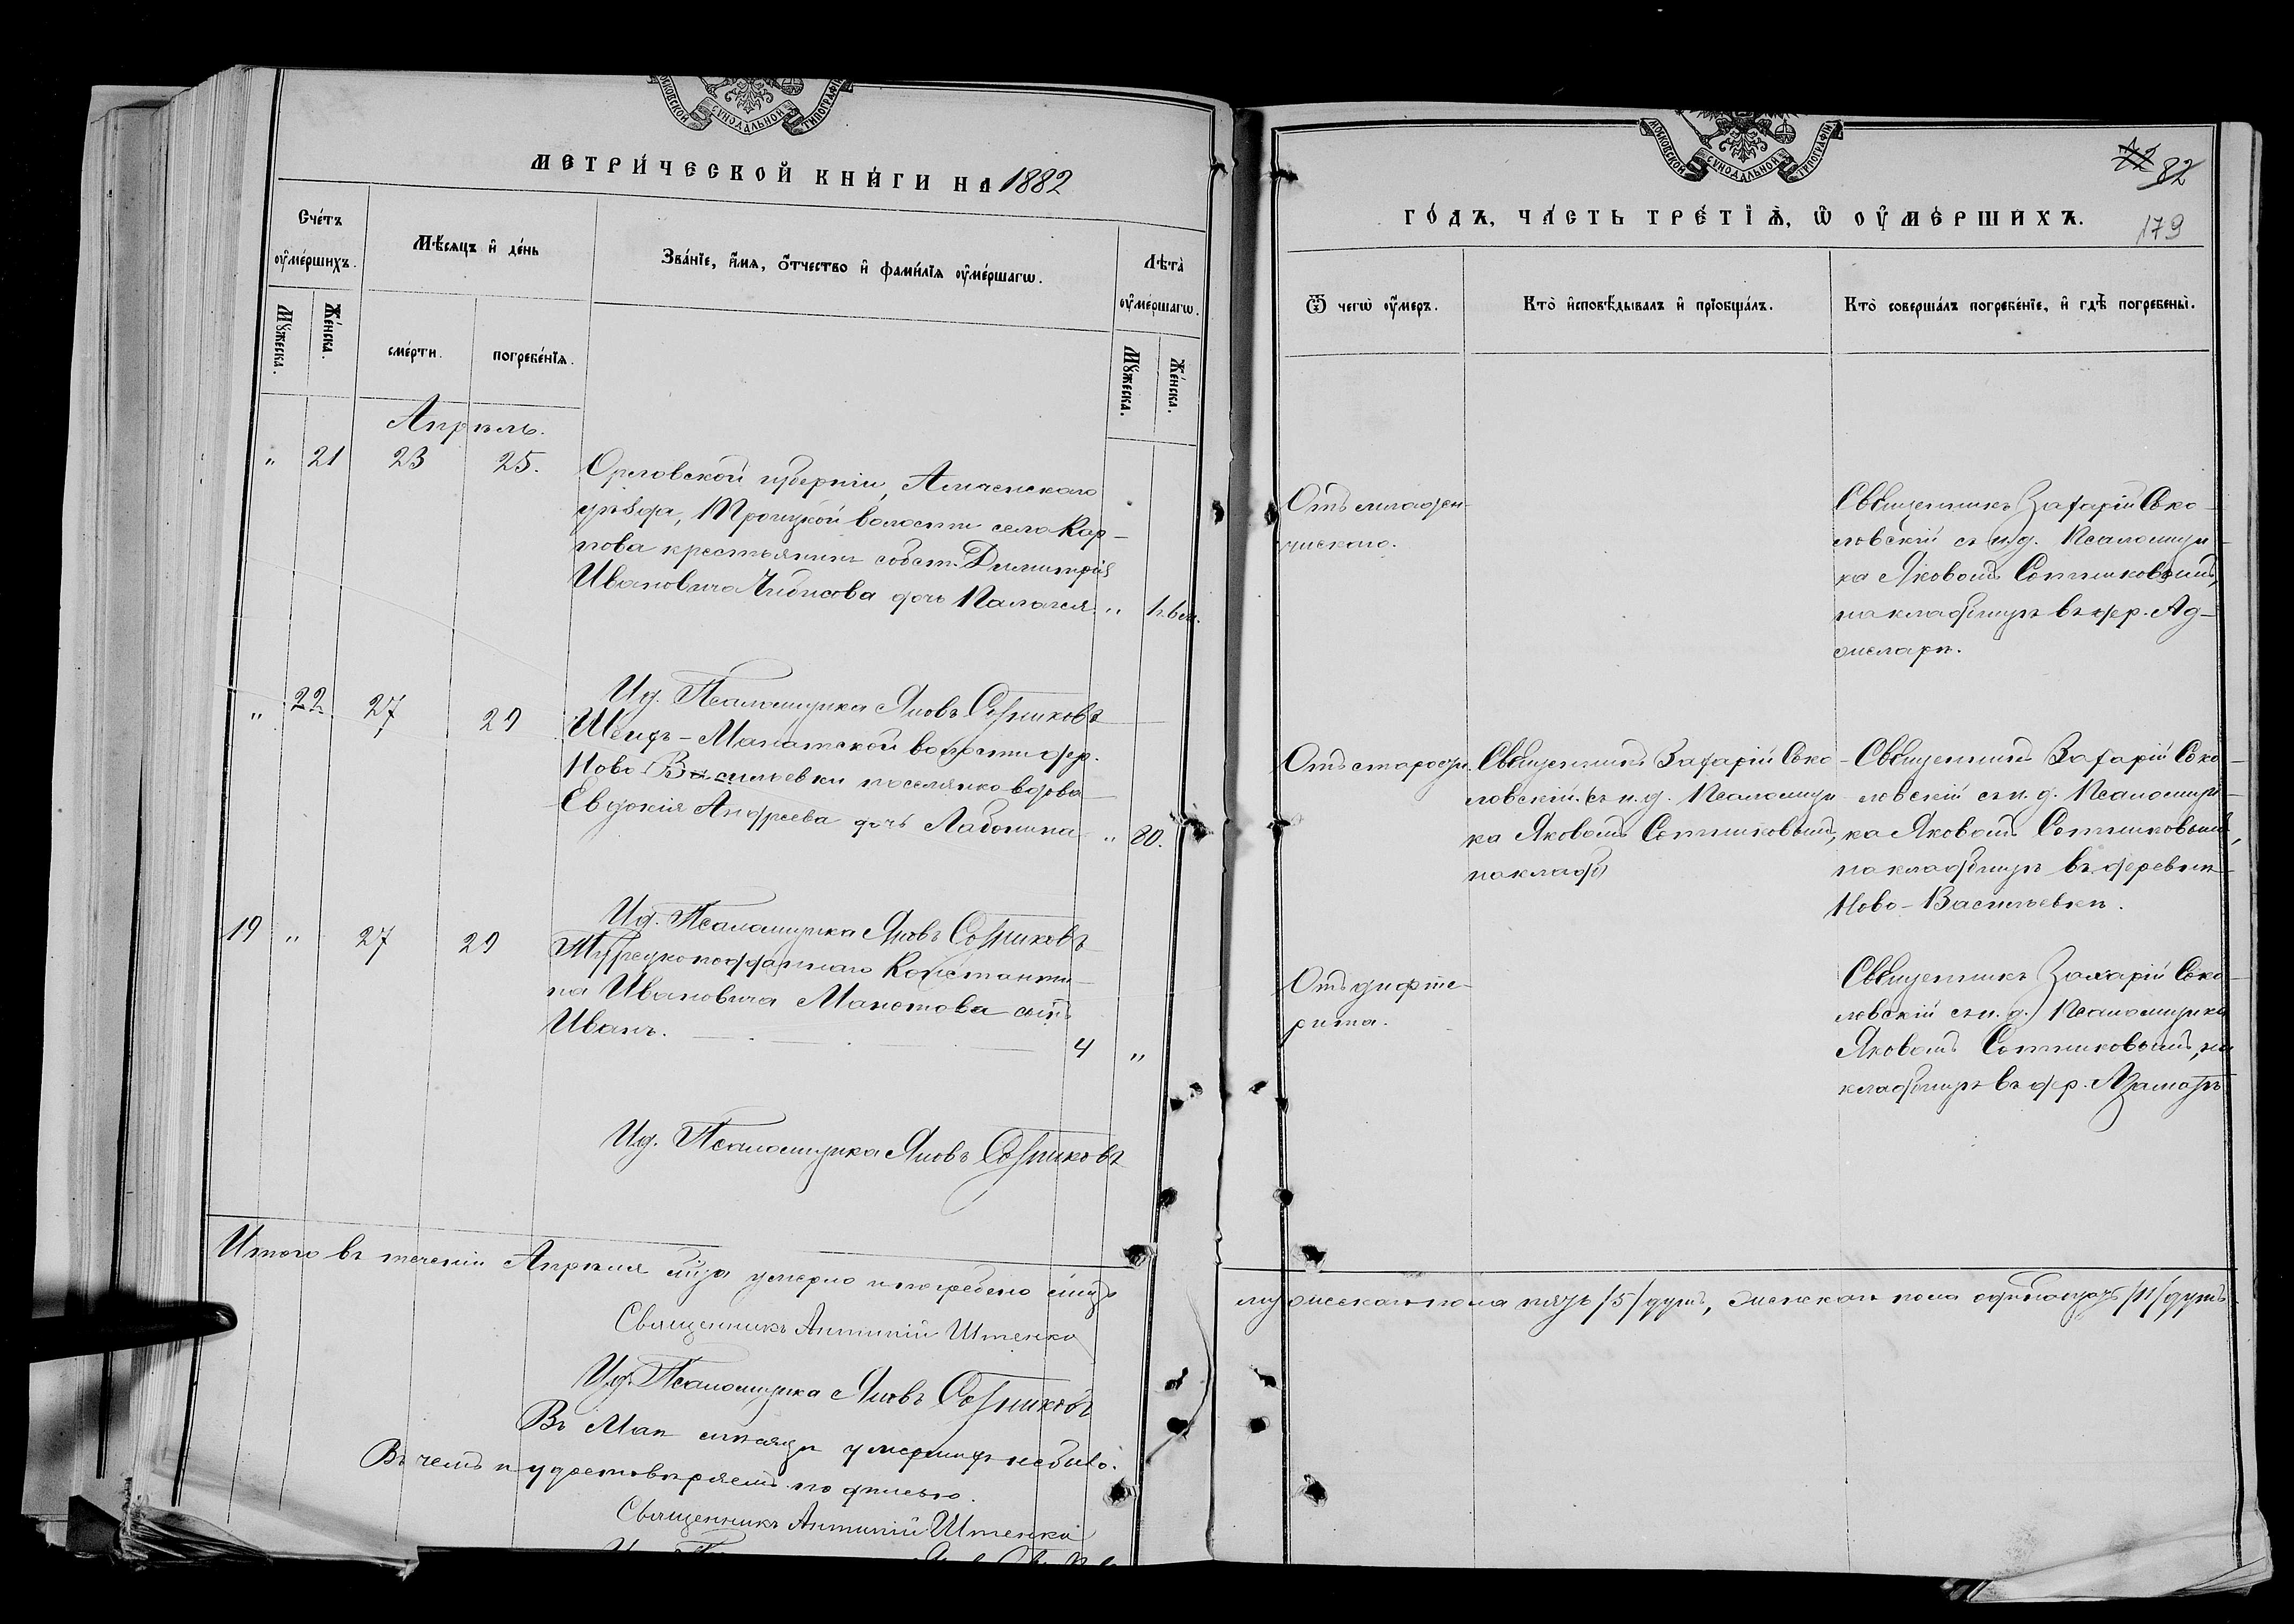 МОСКОВСКОЙ СѴНОДАЛЬНОЙ ТИПОГРАФІИ
МЕТРИ́ЧЕСКОЙ КНИ́ГИ НА 1882
Сче́тъ оу҆ме́ршихъ.
Мѣ́сяцъ и҆ де́нь
Зва́нїе, и҆́мѧ, ѻ҆́тчество и҆ фами́лїѧ оу҆ме́ршагѡ.
Лѣта̀ оу҆ме́ршагѡ.
Мꙋ́жеска.
Же́нска.
сме́рти.
погребе́нїѧ.
Мꙋ́жеска.
Же́нска.
Апрѣль.
„ 21 23 25.
Орловской губерніи, Амченскаго
уѣзда, Троицкой волости села Кар-
пова крестьянин собст. Димитрія
Ивановича Чибисова дочь Палагея „
„ 22 27 29
Ид. Псаломщика Яковъ Сотниковъ
Шеихъ-Манайской волости дер.
Ново-Васильевки поселянка вдова
Евдокія Андреева дочь „ 80.
19 „ 27 29
Ид. Псаломщика Яковъ Сотниковъ
Турецкоподданнаго Константи-
на Ивановича сынъ
Иванъ. 4 „
Ид. Псаломщика Яковъ Сотниковъ
Итого въ теченіи Апрѣля м-ца умерло и погребено
Священникъ Антипій Штенко
Ид. Псаломщика Яковъ Сотниковъ
Въ Маѣ мѣсяцѣ умершихъ небыло.
Въ чемъ и удостовѣряемъ подписью.
Священникъ Антипій Штенко
МОСКОВСКОЙ СѴНОДАЛЬНОЙ ТИПОГРАФІИ
82
ГО́ДЪ, ЧА́СТЬ ТРЕ́ТЇѦ, Ѡ҆ ОУ҆МЕ́РШИХЪ.
179
Ѿ чегѡ̀ оу҆́меръ.
Кто̀ и҆сповѣ́дывалъ и҆ прїобща́лъ.
Кто̀ соверша́лъ погребе́нїе, и҆ гдѣ̀ погребены̀.
Отъ младен-
ческаго.
Священникъ Захарій Соко-
ловскій съ и. д. Псаломщи-
ка Яковомъ Сотниковымъ,
на кладбищѣ въ дер. Ад-
Отъ старости.
Священникъ Захарій Соко-
ловскій съ и. д. Псаломщи
ка Яковомъ Сотниковымъ,
на кладб
Священникъ Захарій Соко-
ловскій съ и. д. Псаломщи-
ка Яковомъ Сотниковымъ,
на кладбищѣ въ деревнѣ
Ново-Васильевкѣ.
Отъ дифте-
рита.
Священникъ Захарій Соко-
ловскій съ и. д. Псаломщика
Яковомъ Сотниковымъ, на
кладбищѣ въ дер. Азаматъ
мужескаго пола пять /5/ душъ, женскаго пола одинадцать /11/ душъ